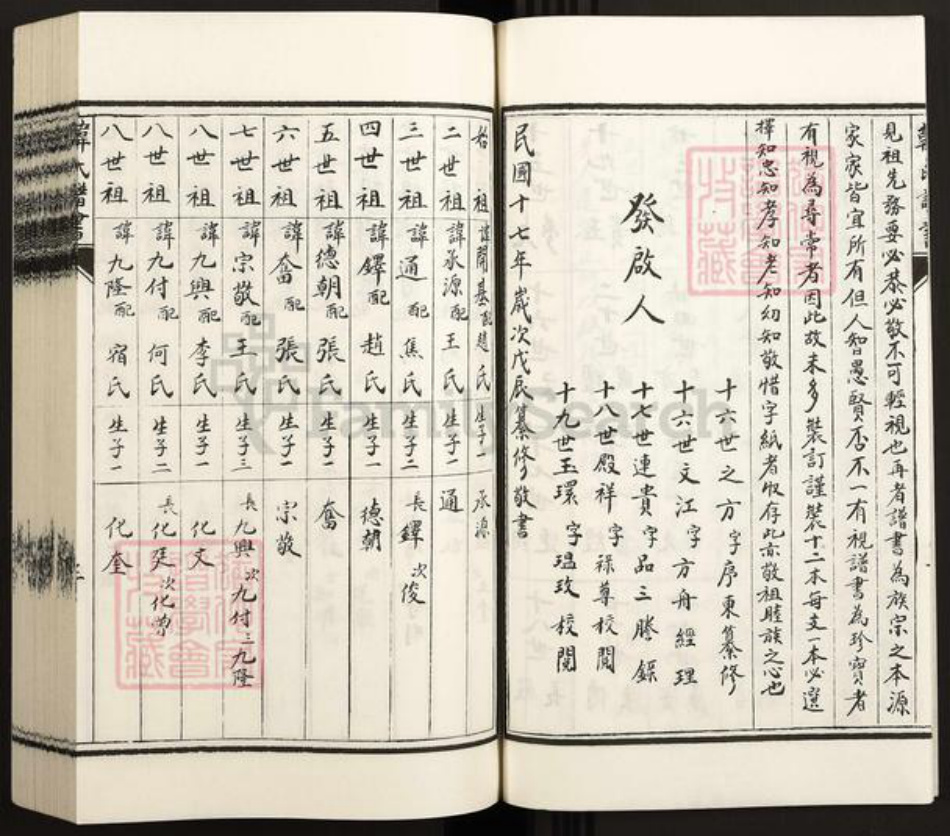 見祖先務要必恭必敬不可輕視也再者譜書為族宗之本源
家家皆宜所有但人智愚賢否不一有視譜書為珍寶者
有視為尋常者因此故未多裝訂謹裝十二本每支一本必選
擇知忠知孝知老知幼知敬惜字紙者收存此亦敬祖睦族之心也
發啟人
十六世之方 字序東纂修
十六世文江 字方舟經理
十七世連貴 字品三謄錄
十八世殿祥 字祿尊校閱
十九世玉環 字瑥玫校閱
民國十七年歲次戊辰纂修敬書
始祖 諱開基配趙氏 生子一 承源
二世祖 諱承源配王氏 生子一 通
三世祖 諱通配焦氏 生子二 長鐸次俊
四世祖 諱鐸配趙氏 生子一 德朝
五世祖 諱德朝配張氏 生子一 奮
六世祖 諱奮配張氏 生子一 宗敬
七世祖 諱宗敬配王氏 生子三 長九興次九付三九隆
八世祖 諱九興配李氏 生子一 化文
八世祖 諱九付配何氏 生子二 長化廷次化
八世祖 諱九隆配宿氏 生子一 化奎
氏譜書
FamilySearch